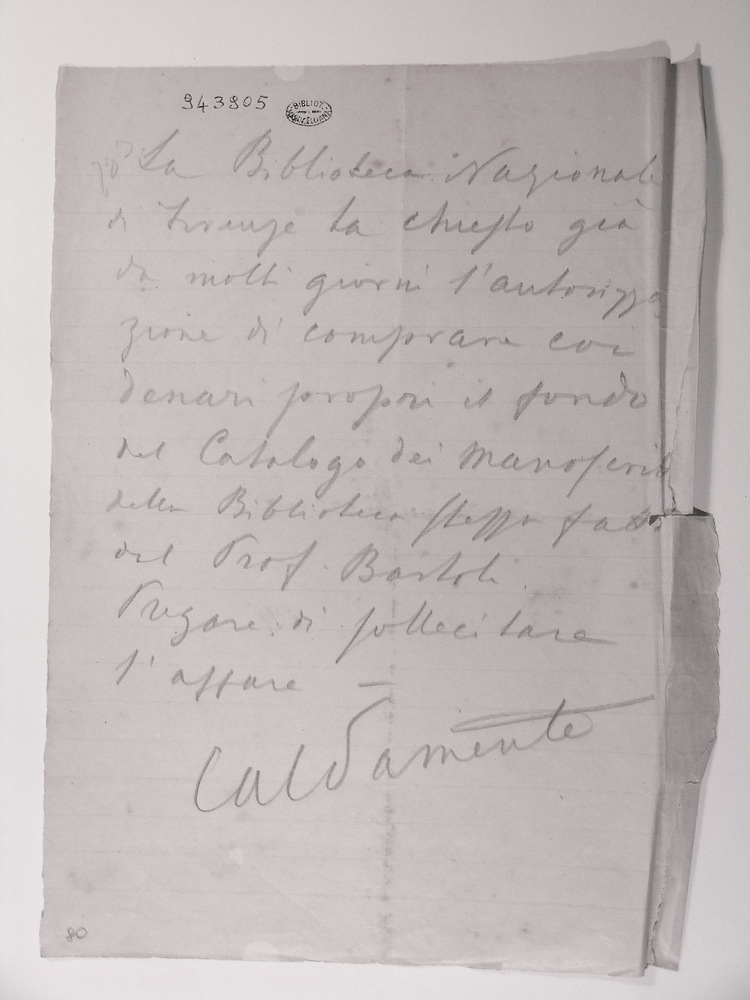 943805
BIBLIOT.
La Biblioteca Nazionale
di Firenze ha chiesto già
da molti giorni l'autorizza
zione di comprare coi
denari propri il fondo
del Catalogo dei Manoscritti
della Biblioteca stessa fatto
del Prof. Bartoli.
Pregare di sollecitare
l'affare —
Caldamente
80